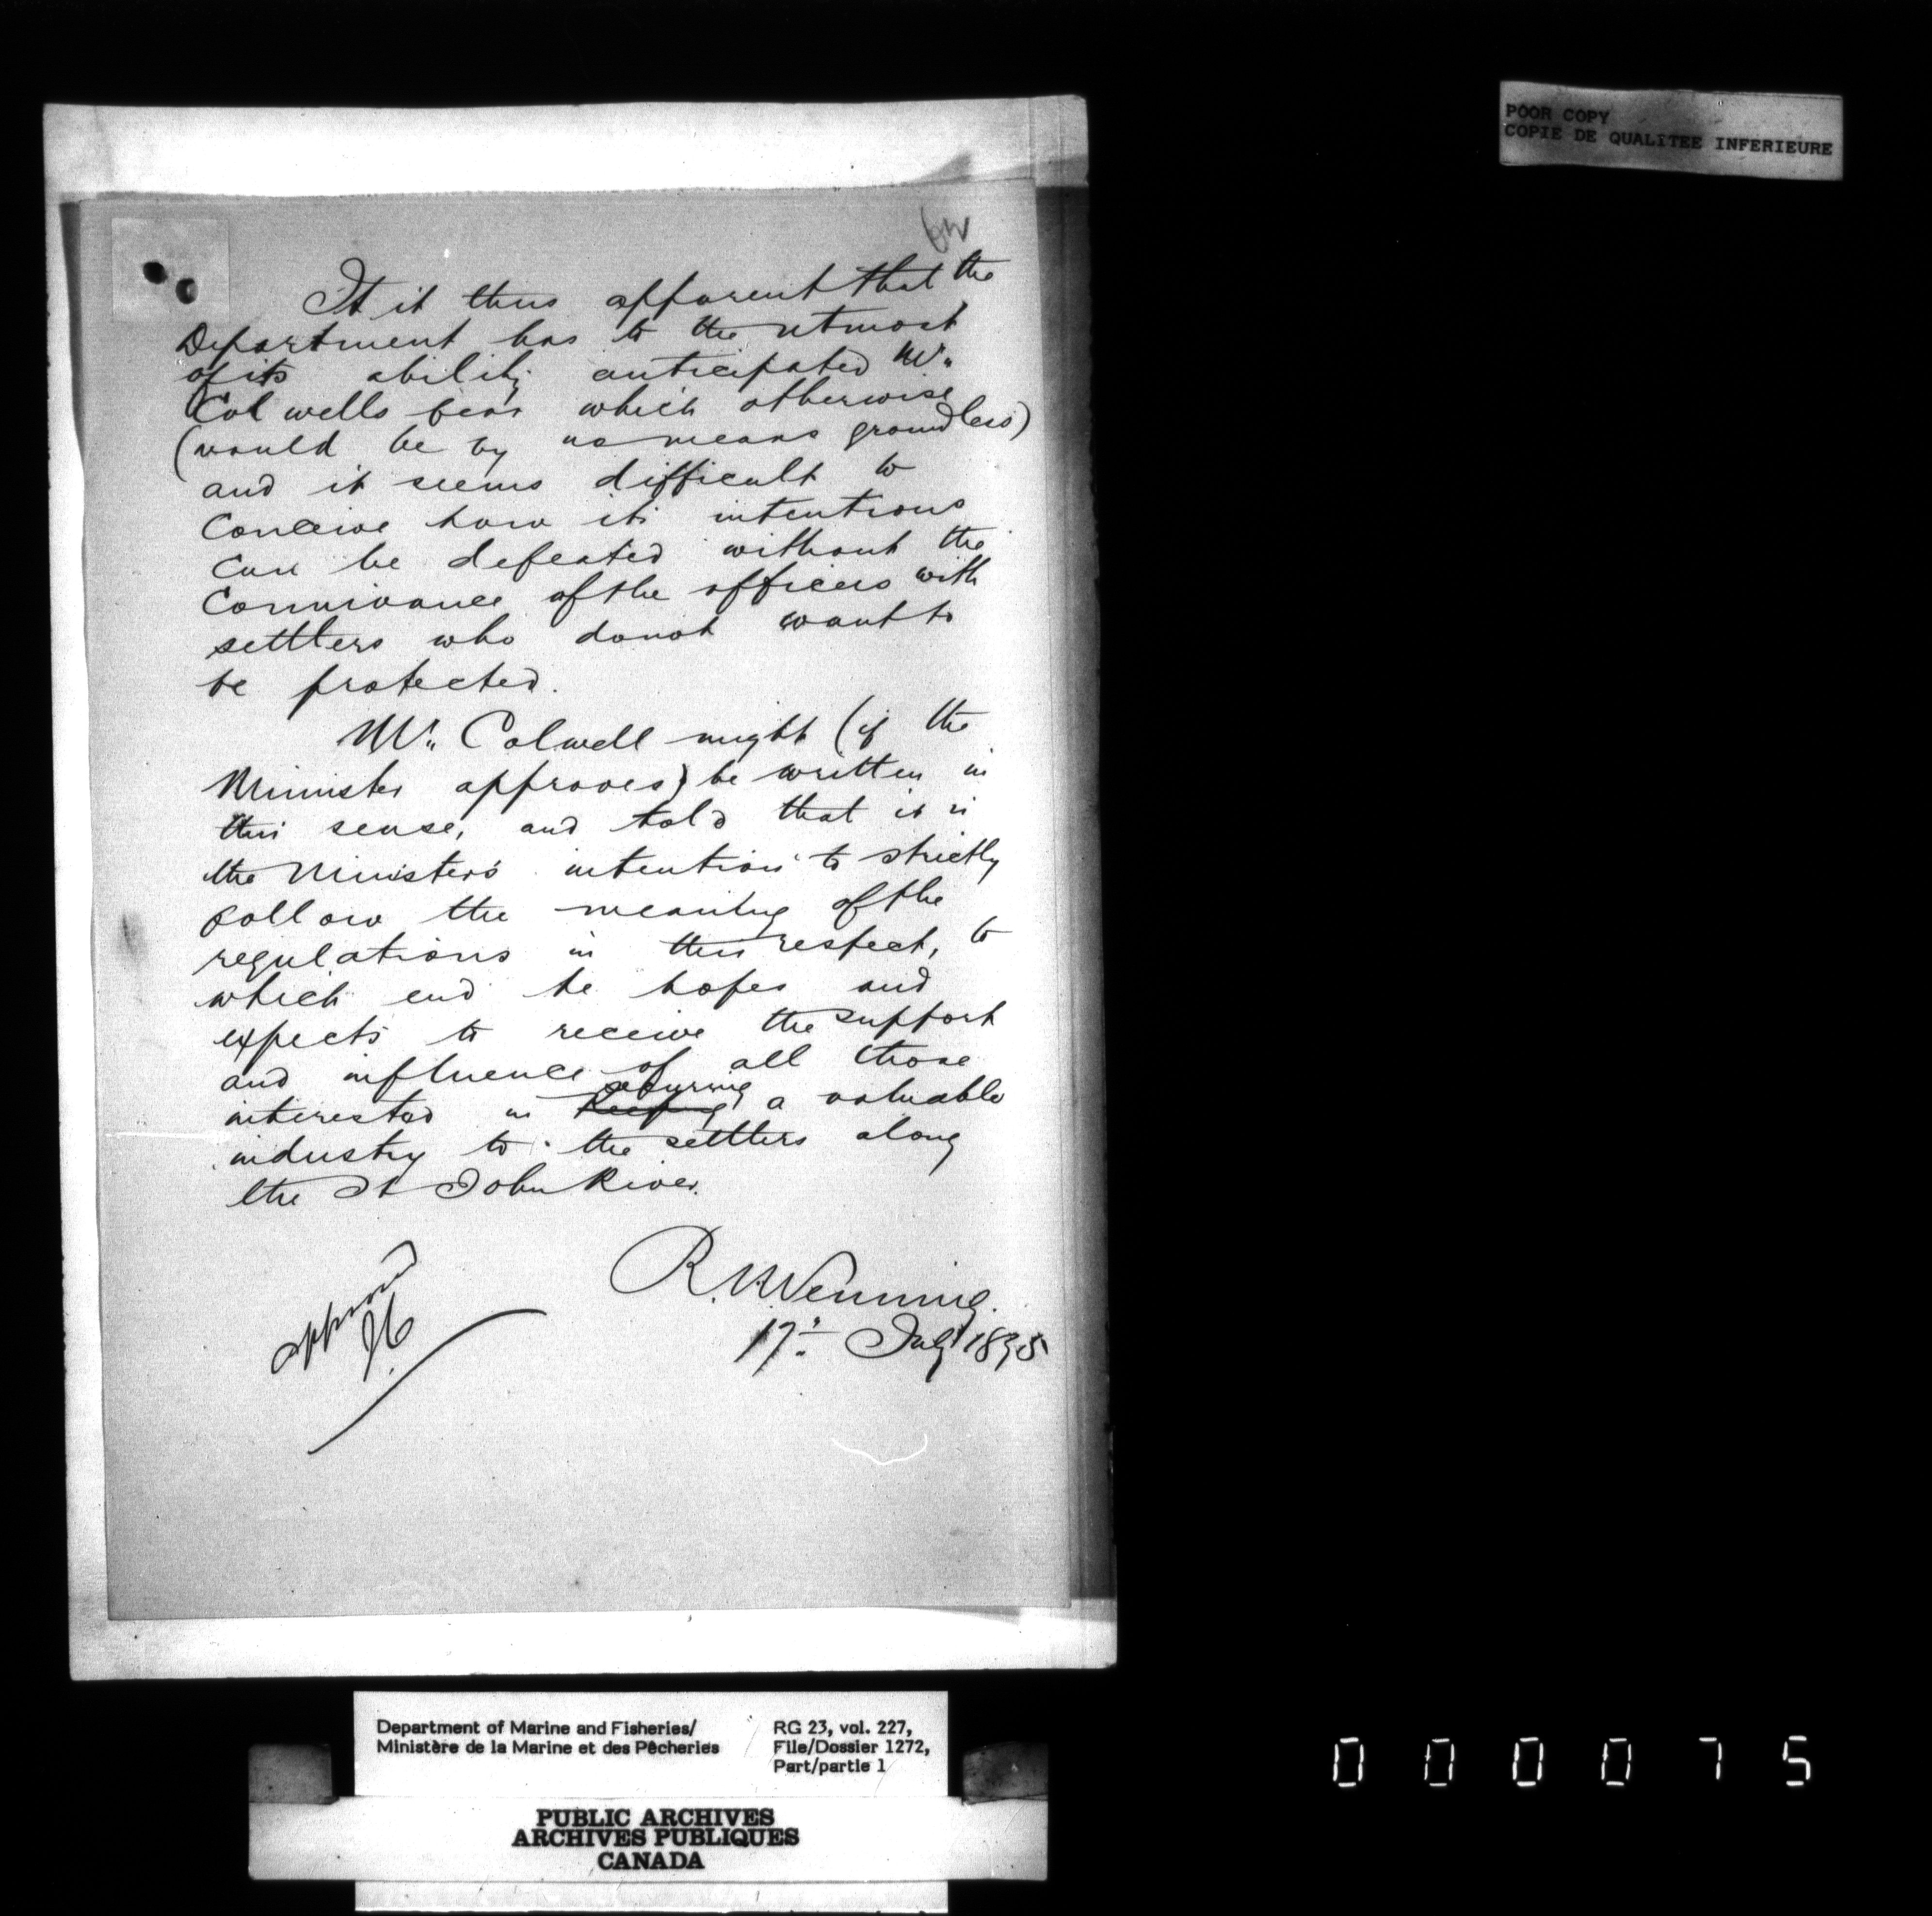 It is thus apparent that the
Department has to the utmost
of its ability anticipated Mr.
Colwells fear which otherwise
(would be by no means groundless)
and it seems difficult to
Conceive how its intentions
can be defeated without the
Connivance of the officers with
settlers who do not want to
be protected.
Mr. Colwell might (if the
Minister approves) be written in
this sense, and told that it is
the Minister's intention to strictly
follow the meaning of the
regulations in this respect, to
which end he hopes and
expects to receive the support
and influence of all those
securing
interested in Keeping a valuable
industry to the settlers along
the St John River.
R. N. Venning.
17th July 1895
approved
POOR COPY
COPIE DE QUALITEE INFERIEURE
Department of Marine and Fisheries/
Ministère de la Marine et des Pêcheries
RG 23, vol. 227,
File/Dossier 1272,
Part/partie 1
PUBLIC ARCHIVES
ARCHIVES PUBLIQUES
CANADA
000075